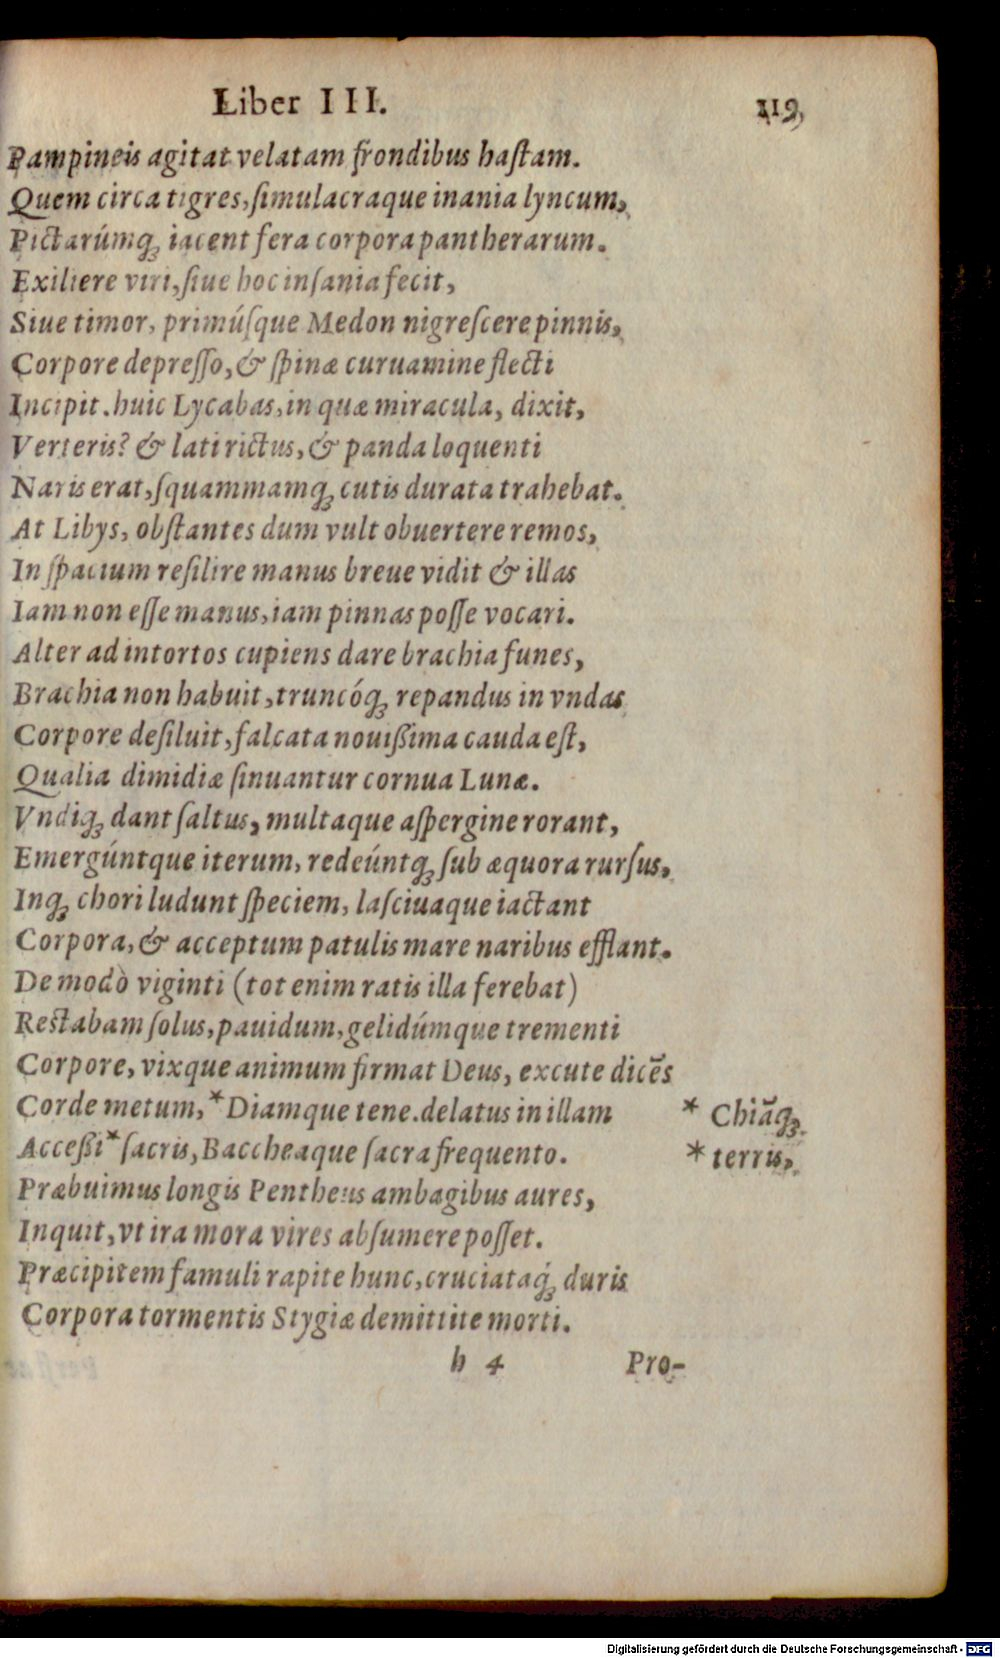 Liber III.
119
Pampineis agitat velatam frondibus haſtam.
Quem circa tigres, ſimulacraque inania lyncum,
Pictarúmq́ꝫ iacent fera corpora pantherarum.
Exiliere viri, ſiue hoc inſania fecit,
Siue timor, primúſque Medon nigreſcere pinnis,
Corpore depreſſo, & ſpinæ curuamine flecti
Incipit. huic Lycabas, in quæ miracula, dixit,
Verteris? & lati rictus, & panda loquenti
Naris erat, ſquammamqꝫ cutis durata trahebat.
At Libys, obſtantes dum vult obuertere remos,
In ſpacium reſilire manus breue vidit & illas
Iam non eſſe manus, iam pinnas poſſe vocari.
Alter ad intortos cupiens dare brachia funes,
Brachia non habuit, truncóqꝫ repandus in vndas
Corpore deſiluit, falcata nouißima cauda eſt,
Qualia dimidiæ ſinuantur cornua Lunæ.
Vndiqꝫ dant ſaltus, multaque aſpergine rorant,
Emergúntque iterum, redeúntqꝫ ſub æquora rurſus,
Inqꝫ chori ludunt ſpeciem, laſciuaque iactant
Corpora, & acceptum patulis mare naribus efflant.
De modò viginti (tot enim ratis illa ferebat)
Reſtabam ſolus, pauidum, gelidúmque trementi
Corpore, vixque animum firmat Deus, excute dicẽs
Corde metum, *Diamque tene. delatus in illam
* Chiãqꝫ
Acceßi *ſacris, Baccheaque ſacra frequento.
* terris,
Præbuimus longis Pentheus ambagibus aures,
Inquit, vt ira mora vires abſumere poſſet.
Præcipitem famuli rapite hunc, cruciataq́ꝫ duris
Corpora tormentis Stygiæ demittite morti.
h 4
Pro-
Digitalisierung gefördert durch die Deutsche Forschungsgemeinschaft - DFG